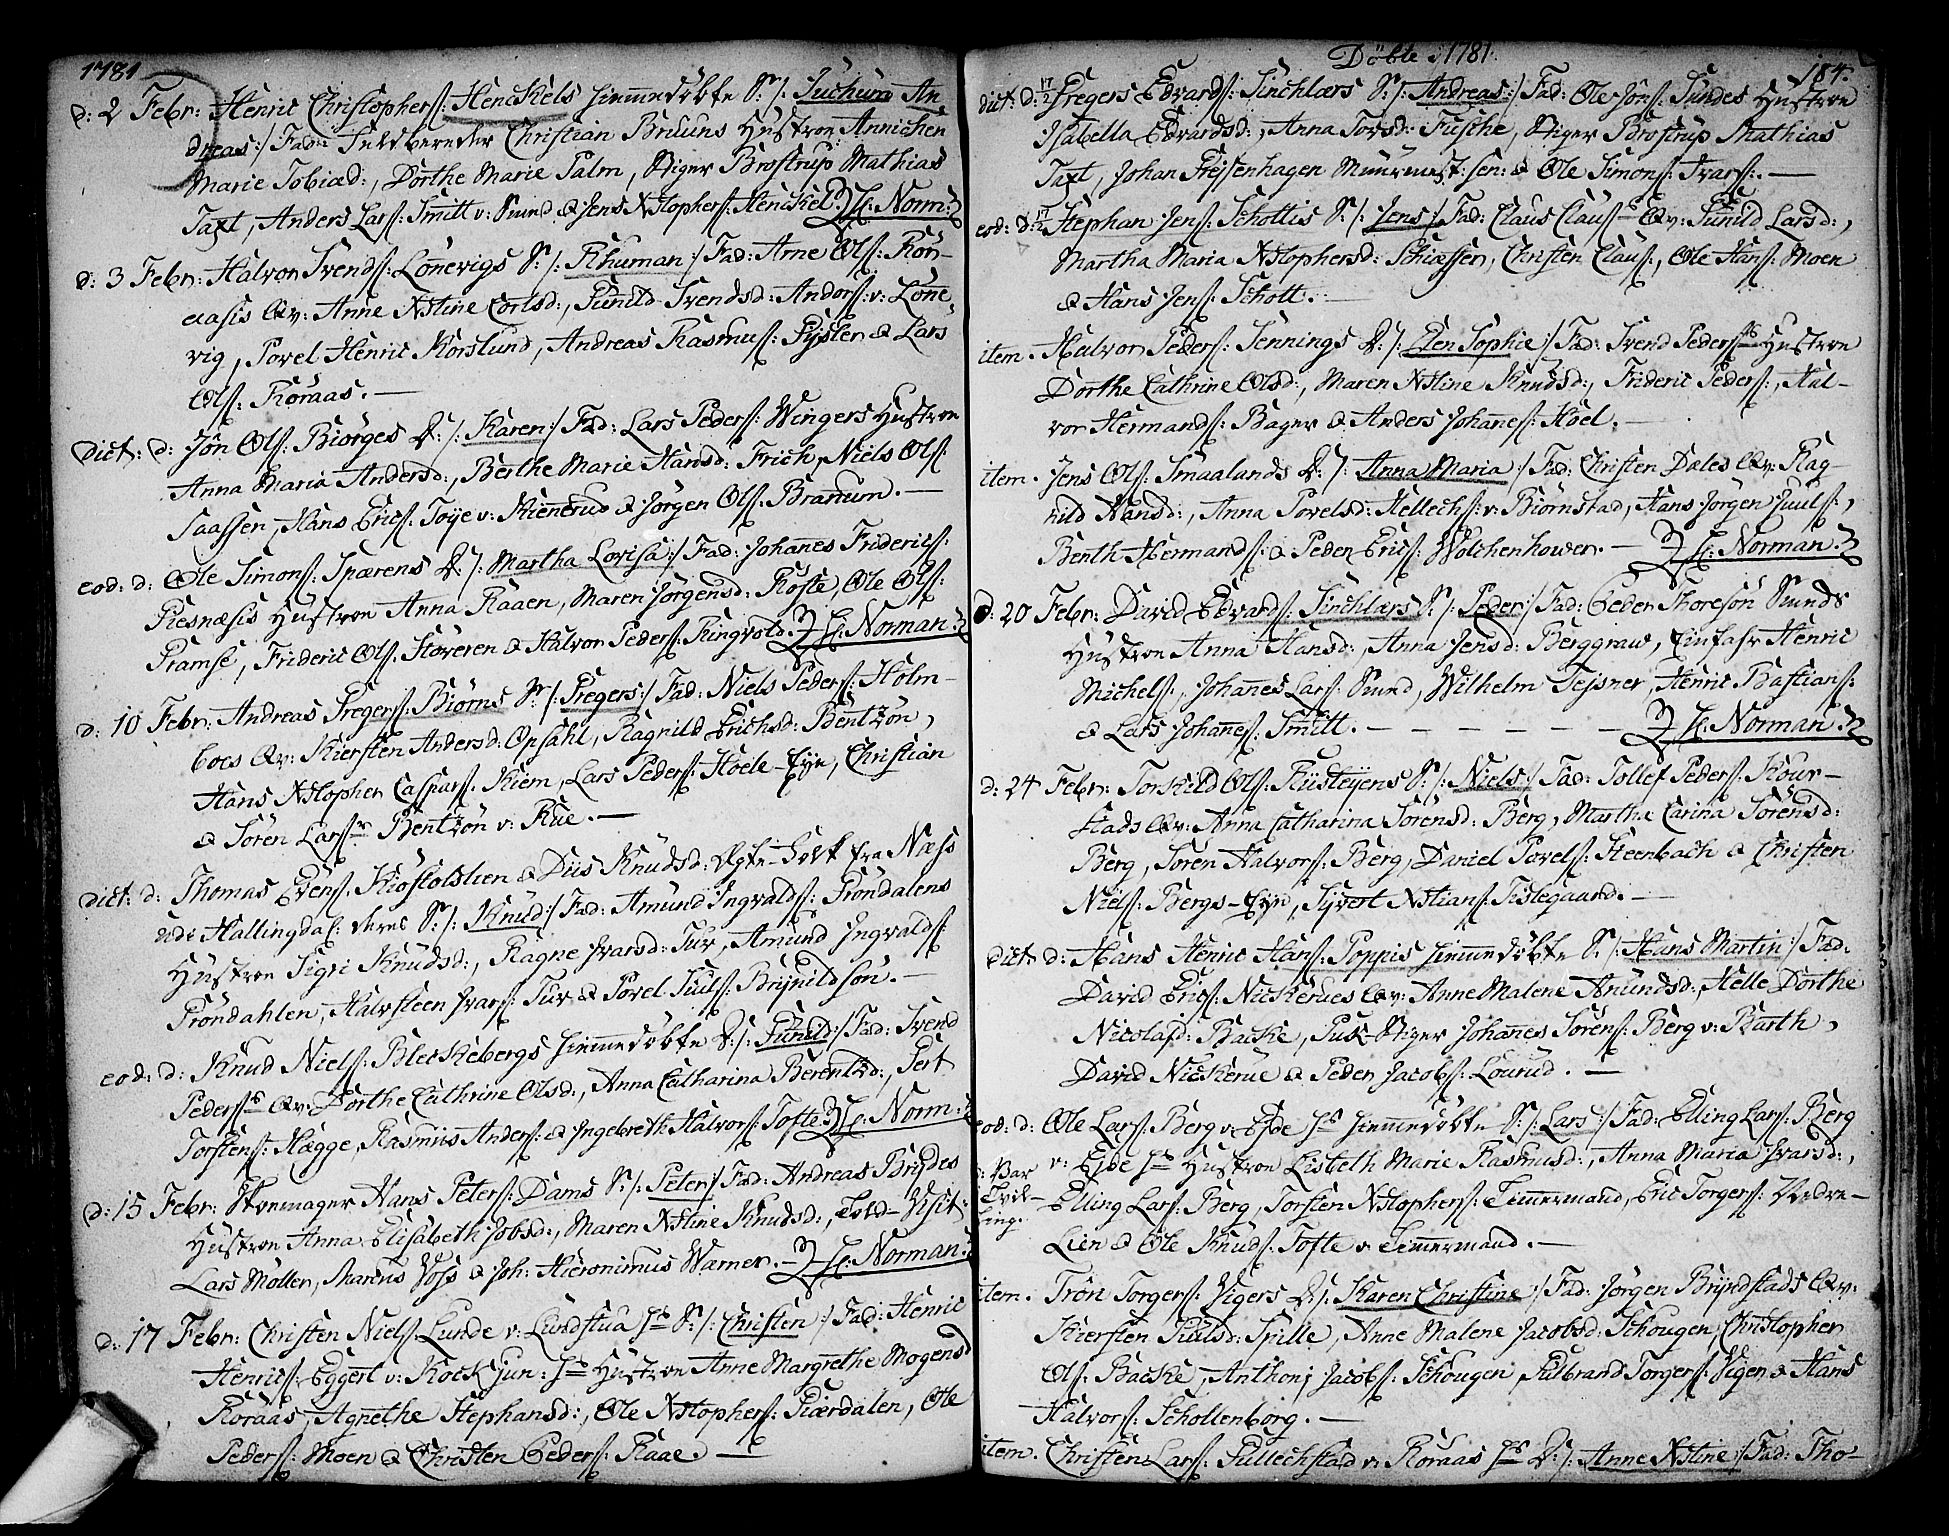 1781
d: 2 Febr: Henric Christophers: Henckels hiemmedøbte S: /: Juchum An-
dreas :/ Fad: Christian Bruuns Hustroe Annichen
Marie Tobiæd:, Dorthe Marie Palm, Stiger Brostrup Mathias
Taxt, Anders Lars: Smitt v: Sund & Jens Xstophers: Henckel. H: Norm:
d: 3 Febr: Halvor Svends: Lønevigs S: /: Rhuman :/ Fad: Arne Ols: Kor-
Qv: Anne Xstine Corlsd:, Gunild Svendsd: Andors: v: Løne-
vig, Povel Henric Korslund, Andreas Rasmus: & Lars
Ols: Roraas. —
dict: d: Jøn Ols: Biørges D: /: Karen :/ Fad: Lars Peders: Wengers Hustroe
Anna Maria Andersd:, Berthe Marie Hansd: Frich, Niels Ols:
Saassen, Hans Erics: Toÿe v: Kienerud & Jørgen Ols: Branum. —
eod: d: Ole Simons: Spærens D: /: Martha Lovisa :/ Fad: Johannes Friderics:
Hustroe Anna Raaen, Maren Jørgensd: Roste, Ole Ols:
Pramse, Frideric Ols: Støveren & Halvor Peders: Ringvold. H: Norman:
d: 10 Febr: Andreas Gregers: Biørns S: /: Gregers :/ Fad: Niels Peders: Holm-
boes Qv: Kiersten Andersd: Opsahl, Ragnild Erichsd: Bentzøn,
Hans Xstopher Caspars: Kiem, Lars Peders: Hoele-Eÿe, Christian
& Søren Lars: Bentzøn v: Rue. —
dict: d: Thomas Evens: Kiøstolslien & Diis Knudsd: Ægte-Folk fra Næss
udi Hallingdal: deres S: /: Knud :/ Fad: Amund Ingvalds: Prøndalens
Hustroe Sigri Knudsd:, Ragne Ivarsd: Tuv, Amund Ingvalds:
Prøndahlen, Halvsteen Ivars: Tuv & Povel Juuls: Brÿnildsøn. —
eod: d: Knud Niels: Bleckebergs hiemmedøbte D: /: Gunild :/ Fad: Svend
Peders: Qv: Dorthe Cathrine Olsd:, Anna Catharina Berentzd:, Gert
Torstens: Hægge, Rasmus Anders: & Ingebreth Halvors: Tofte. H: Norm:
d: 15 Febr: Skoemager Hans Peters: Dams S: /: Peter :/ Fad: Andreas Brÿdes
Hustroe Anna Elisabeth Jobsd:, Maren Xstine Knudsd:, Told-Visit:
Lars Møller, Marcus Voss & Joh: Hieronimus Warner. — H: Norman:
d: 17 Febr: Christen Niels: Lunde v: Lundstua S: /: Christen :/ Fad: Henric
Henrics: Eggert v: Kock jun: Hustroe Anne Margrethe Mogensd:
Roraas, Agnethe Stephansd:, Ole Xstophers: Giærdalen, Ole
Peders: Moen & Christen Peders: Raae. —
Døbte 1781.
184.
dict: d: 17/2 Gregers Edvards: Sinchlærs S: /: Andreas :/ Fad: Ole Jøns: Sundes Hustroe
Isabella Edvardsd:, Anna Torsd: Fusche, Stiger Brostrup Mathias
Taxt, Johan Muurmest: sen: & Ole Simons: Ivars:. —
eod: d: 17/2 Stephan Jens: Schottis S: /: Jens :/ Fad: Claus Claus: Qv: Gunild Larsd:,
Martha Maria Xstophersd: Schiæsser, Christen Claus:, Ole Hans: Moen
& Hans Jens: Schott. —
item. Halvor Peders: Jennings D: /: Elen Sophie :/ Fad: Svend Peders: Hustroe
Dorthe Cathrine Olsd:, Maren Xstine Knudsd:, Frideric Peders:, Hal-
vor Hermands: Bager & Anders Johannes: Hoel. —
item. Jens Ols: Smaalands D: /: Anna Maria :/ Fad: Christen Dales Qv: Rag-
nild Hansd:, Anna Povelsd: Hellechs: v: Biørnstad, Hans Jørgen Juuls:,
Benth Hermands: & Peder Erics: Wolchenhower. — H: Norman:
d: 20 Febr: David Edvards: Sinchlærs S: /: Peder :/ Fad: Peder Thoresøn Sunds
Hustroe Anna Hansd:, Anna Jensd: Berggraw, Einfahr Henric
Michels:, Johannes Lars: Sund, Wilhelm Tejsner, Henric Bastians:
& Lars Johannes: Smitt. — — — — — — H: Norman:
d: 24 Febr: Torkild Ols: Rustejens S: /: Niels :/ Fad: Tollef Peders: Skour-
stads Qv: Anna Catharina Sørensd: Berg, Martha Carina Sørensd:
Berg, Søren Halvors: Berg, Daniel Povels: Steenbach & Christen
Niels: Bergs-Eÿe, Sÿvert Xstians: Tislegaard. —
dict: d: Hans Henric Hans: Poppis hiemmedøbte S: /: Hans Martin :/ Fad:
David Erics: Nickerues Qv: Anne Malene Amundsd:, Helle Dorthe
Nicolajd: Backe, Puk-Stiger Johannes Sørens: Berg v: Barth,
David Nickerue & Peder Jacobs: Lourud. —
eod: d: Ole Lars: Berg v: Eÿde hiemmedøbte S: /: Lars :/ Fad: Elling Lars: Berg
v: Eÿde Hustroe Lisbeth Marie Rasmusd:, Anna Maria Ivarsd:,
: Var
Tvil-
ling.
Elling Lars: Berg, Torsten Xstophers: Timmermand, Eric Torgers: Vedre-
Lien & Ole Knuds: Tofte v: Timmermand. —
item. Trøn Torgers: Vigers D: /: Karen Christine :/ Fad: Jørgen Brÿndstads Qv:
Kiersten Juulsd: Spille, Anne Malene Jacobsd: Schougen, Christopher
Ols: Backe, Anthonj Jacobs: Schougen, Gulbrand Torgers: Vigen & Hans
Halvors: Schollenborg. —
item. Christen Lars: Gullechstad v: Roraas D: /: Anne Xstine :/ Fad: Tho-